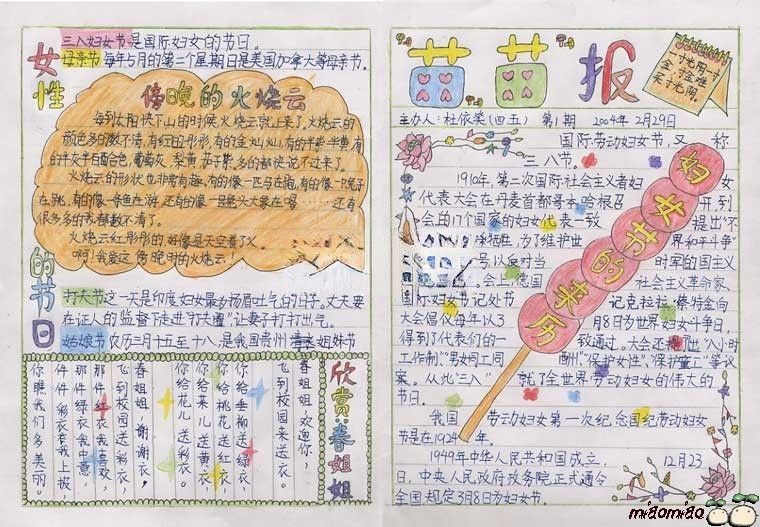 女性的节日
三八妇女节是国际妇女的节日。
母亲节 每年5月的第二个星期日是美国加拿大等母亲节。
傍晚的火烧云
每到太阳快下山的时候火烧云就上来了。火烧云的
颜色多的数不清,有红的彤彤,有的金灿灿,有的半紫半黄,有
的半灰半百合色,葡萄灰、梨黄、茄子紫,多的都说不过来了。
火烧云的形状也非常有趣,有的像一匹马在跑,有的像一只兔子
在跳,有的像一条鱼在游,还有的像一只
很多多的我都数不清了。
火烧云红彤彤的,好像是天空着了火。
啊!我爱这傍晚时的火烧云!
打夫节 这一天是印度妇女最多扬眉吐气的日子。丈夫要
在证人的监督下走进“打夫圈”,让妻子打打出气。
姑娘节 农历二月十五至十八,是我国贵州 姐妹节
欣赏·春姐姐
春姐姐,欢迎你,
飞到校园来送衣。
你给垂柳送绿衣,
你给桃花送红衣,
你给菜儿送黄衣,
你给花儿送彩衣。
春姐姐,谢谢衣,
飞到校园送彩衣,
那件红衣我喜欢,
那件绿衣我中意,
件件彩衣套我上披,
你瞧我们多美丽。
苗苗报
一寸光阴一寸
金,寸金难
买寸光阴。
主办人:杜依笑(四五) 第1期 2004年2月29日
妇女节的来历
国际劳动妇女节,又称
三八节。
1910年,第二次国际社会主义者妇女
代表大会在丹麦首都哥本哈根召开,到
会的17个国家的妇女代表一致 提出“不
为了维护世界和平斗争”
号以反对当时军的国主义
会上,德国社会主义革命家
国际妇女节记处书记克拉拉,蔡特金向
大会倡议每年以3月8日为世界妇女斗争日,
得到了代表们的一致通过。大会还提出“八小时
工作制”、“男女同工同酬”、“保护女性”、“保护童工”等议
案。从此“三八”就了全世界劳动妇女的伟大的
节日。
我国劳动妇女第一次纪念国纪劳动妇女
节是在1924年。
1949年中华人民共和国成立,12月23
日,中央人民政府政务院正式通令
全国规定3月8日为妇女节。
miaomiao